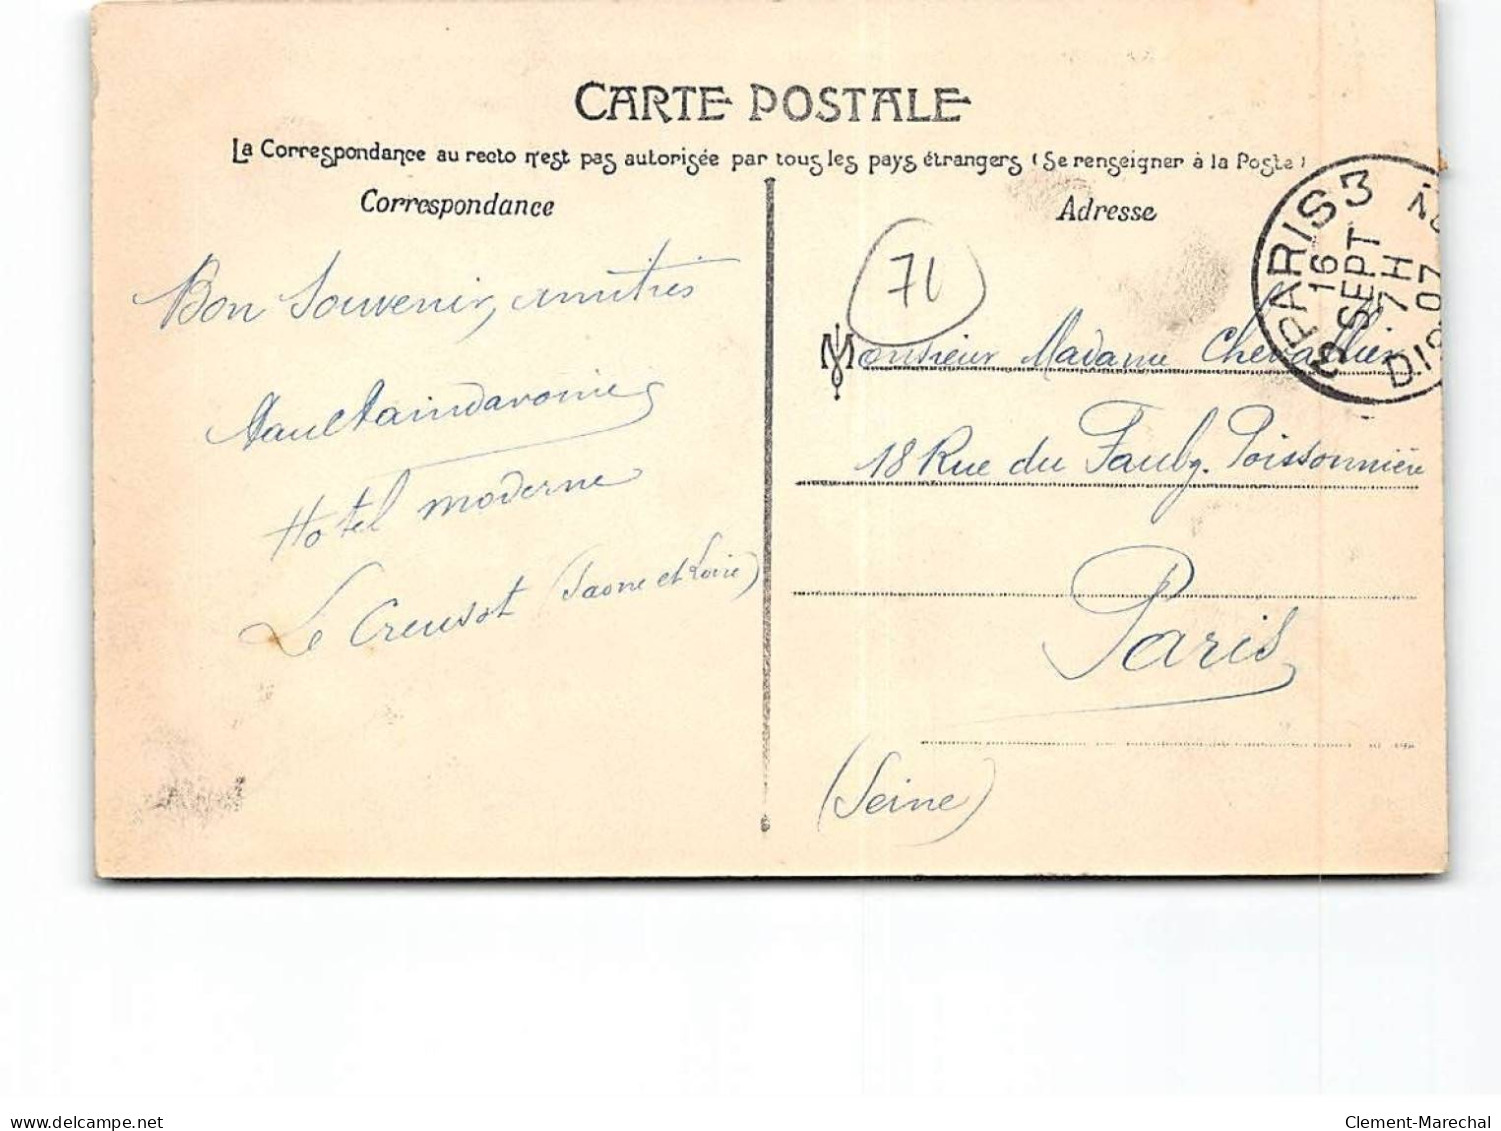 CARTE POSTALE
La Correspondance au recto n'est pas autorisée par tous les pays étrangers (Se renseigner à la Poste)
Correspondance
Adresse
Bon Souvenir, amitiés
Hotel moderne
Le Creusot (Saone et Loire)
71
Monsieur Madame Chevallier
18 Rue du Faubg. Poissonnière
Paris
(Seine)
PARIS 3
16
SEPT
7 H
07
delcampe.net
Clement-Marechal